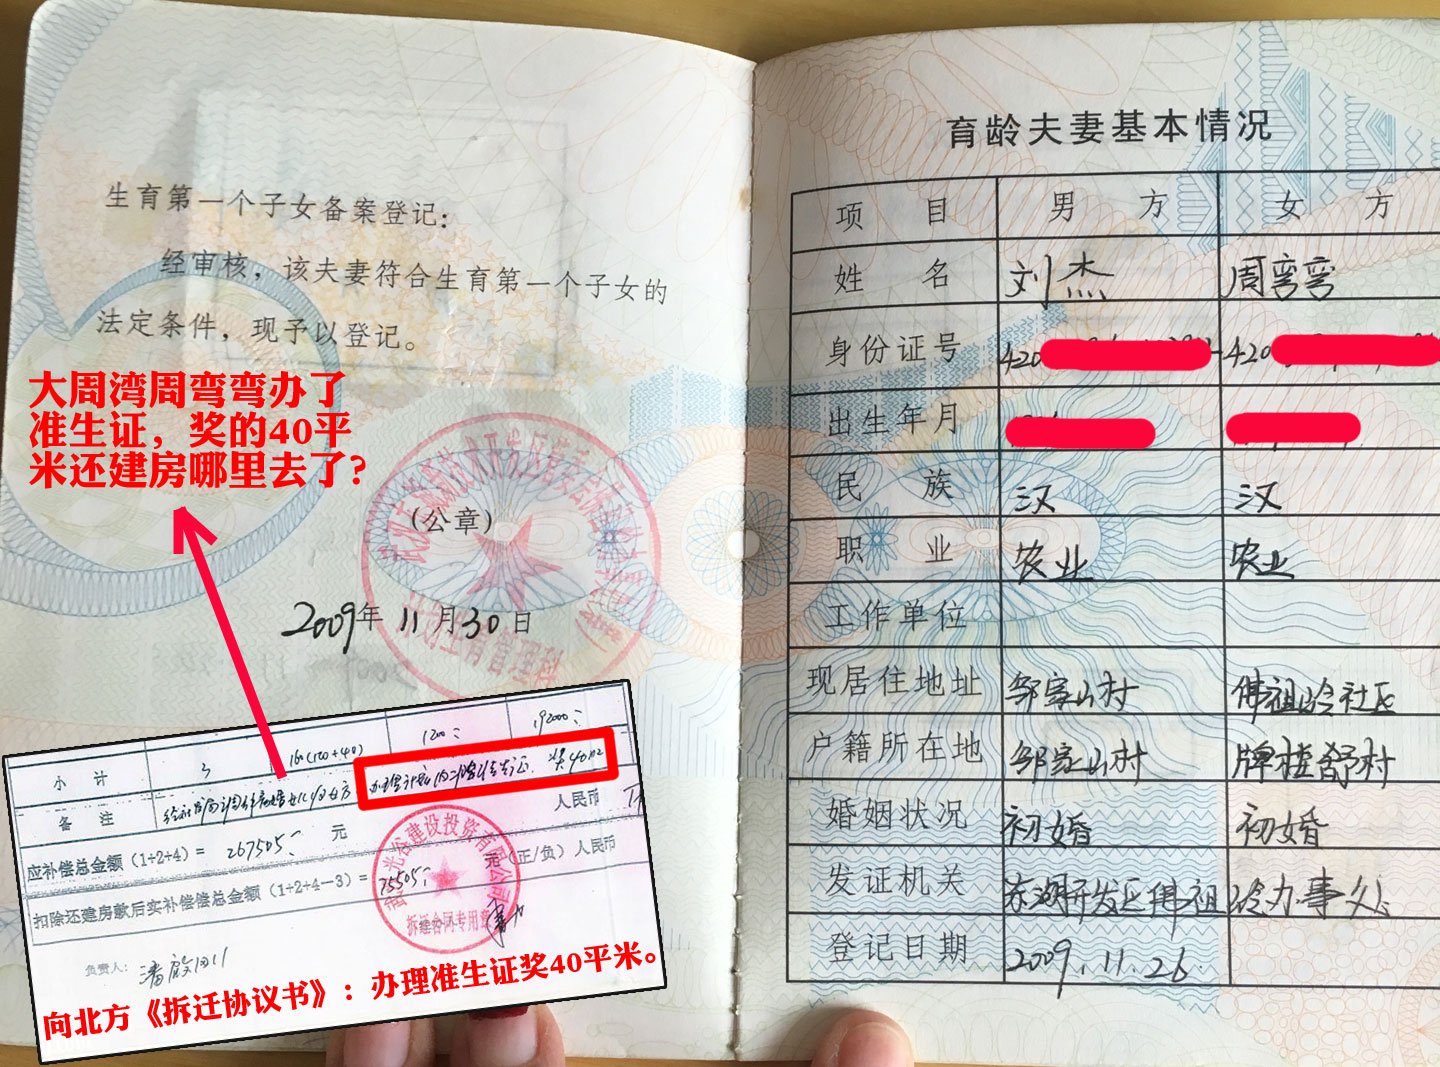 生育第一个子女备案登记:
经审核，该夫妻符合生育第一个子女的
法定条件，现予以登记。
大周湾周弯弯办了
准生证，奖的40平
米还建房哪里去了?
(公章)
2009年 11 月 30 日
小 计 3 160(120+40) 1200 192000
备 注 奖40m2
人民币
应补偿总金额（1+2+4）= 267505 元
扣除还建房款后实补偿总金额（1+2+4-3）= 75505 元（正/负）人民币
光谷建设投资有限公司
拆迁合同专用章
负责人:
向北方《拆迁协议书》：办理准生证奖40平米。
育龄夫妻基本情况
项 目 男 方 女 方
姓 名 刘杰 周弯弯
身份证号 420 420
出生年月
民 族 汉 汉
职 业 农业 农业
工作单位
现居住地址 邹家山村 佛祖岭社区
户籍所在地 邹家山村 牌楼舒村
婚姻状况 初婚 初婚
发证机关 东湖开发区佛祖岭办事处
登记日期 2009.11.26